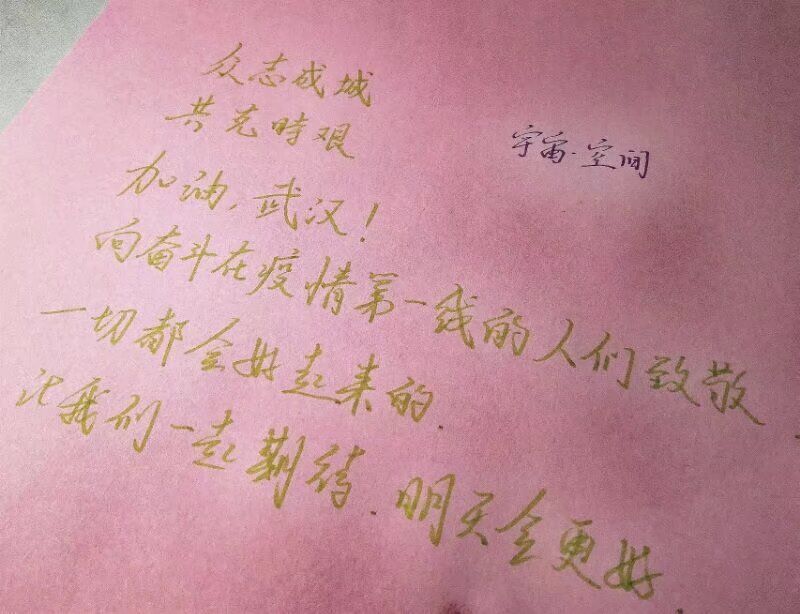 众志成城
共克時艰
宇宙·空间
加油,武汉!
向奋斗在疫情第一线的人们致敬
一切都会好起来的.
让我们一起期待.明天会更好.